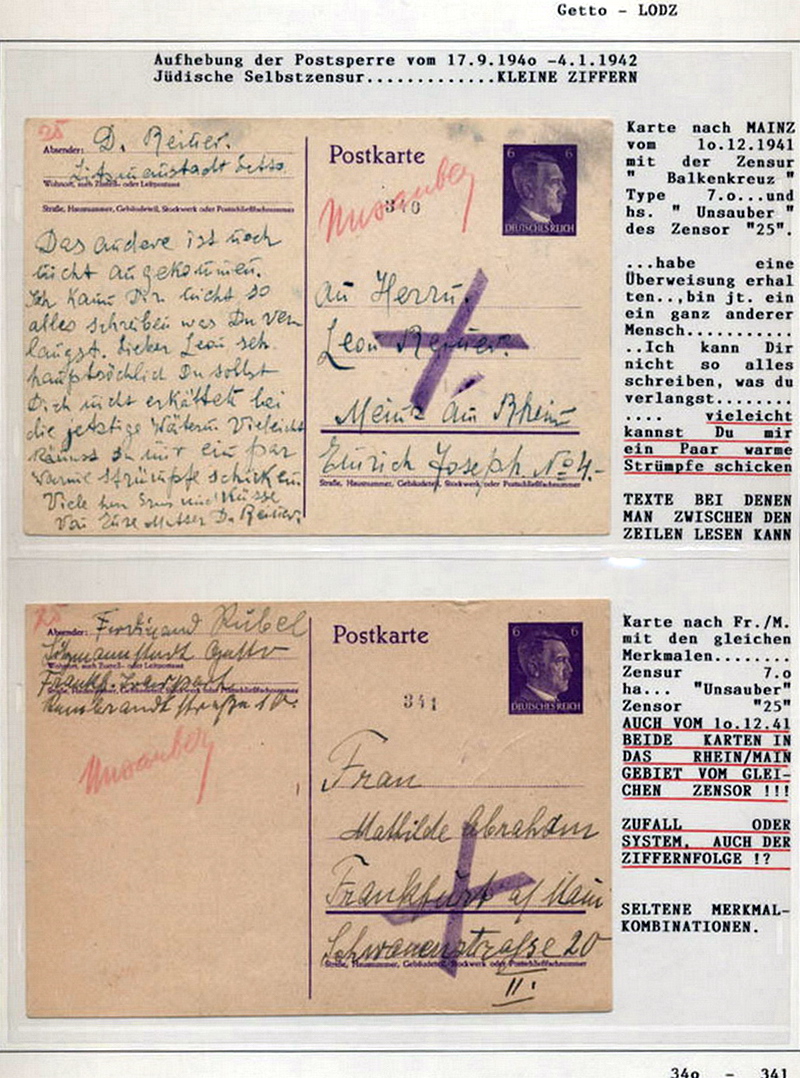 Getto - LODZ
Aufhebung der Postsperre vom 17.9.194o -4.1.1942
Jüdische Selbstzensur.............KLEINE ZIFFERN
25
Absender: D. Reiner.
Litzmannstadt Getto
Wohnort, auch Zustell- oder Leitpostamt
Straße, Hausnummer, Gebäudeteil, Stockwerk oder Postschließfachnummer
Das andere ist noch
nicht angekommen.
Ich kann Dir nicht so
alles schreiben was Du ver
langst. Lieber Leon seh.
hauptsächlich Du sollst
Dich nicht erkälten bei
die jetzige Vieleicht
kannst du mir ein par
warme strümpfe schicken
Viele Küsse
Von Eure Mutter D. Reiner.
Postkarte
6 6
DEUTSCHES REICH
Unsauber
340
An Herrn.
Leon Reiner.
Meinz am Rhein
Emrich Joseph No 4.-
Straße, Hausnummer, Gebäudeteil, Stockwerk oder Postschließfachnummer
Karte nach MAINZ
vom 1o.12.1941
mit der Zensur
" Balkenkreuz "
Type 7.o...und
hs. " Unsauber "
des Zensor "25".
...habe eine
Überweisung erhal
ten..,bin jt. ein
ein ganz anderer
Mensch...........
..Ich kann Dir
nicht so alles
schreiben, was du
verlangst........
.... vieleicht
kannst Du mir
ein Paar warme
Strümpfe schicken
TEXTE BEI DENEN
MAN ZWISCHEN DEN
ZEILEN LESEN KANN
25
Absender: Ferdinand Rubel
Litzmannstadt Getto
Wohnort, auch Zustell- oder Leitpostamt
Straße, Hausnummer, Gebäudeteil, Stockwerk oder Postschließfachnummer
Rembrandtstraße 10.
Unsauber
Postkarte
6 6
DEUTSCHES REICH
341
Frau
Mathilde Abraham
Frankfurt a/Main
Schwanenstraße 20
Straße, Hausnummer, Gebäudeteil, Stockwerk oder Postschließfachnummer
II.
Karte nach Fr./M.
mit den gleichen
Merkmalen........
Zensur 7.o
ha... "Unsauber"
Zensor "25"
AUCH VOM 1o.12.41
BEIDE KARTEN IN
DAS RHEIN/MAIN
GEBIET VOM GLEI-
CHEN ZENSOR !!!
ZUFALL ODER
SYSTEM, AUCH DER
ZIFFERNFOLGE !?
SELTENE MERKMAL-
KOMBINATIONEN.
34o - 341